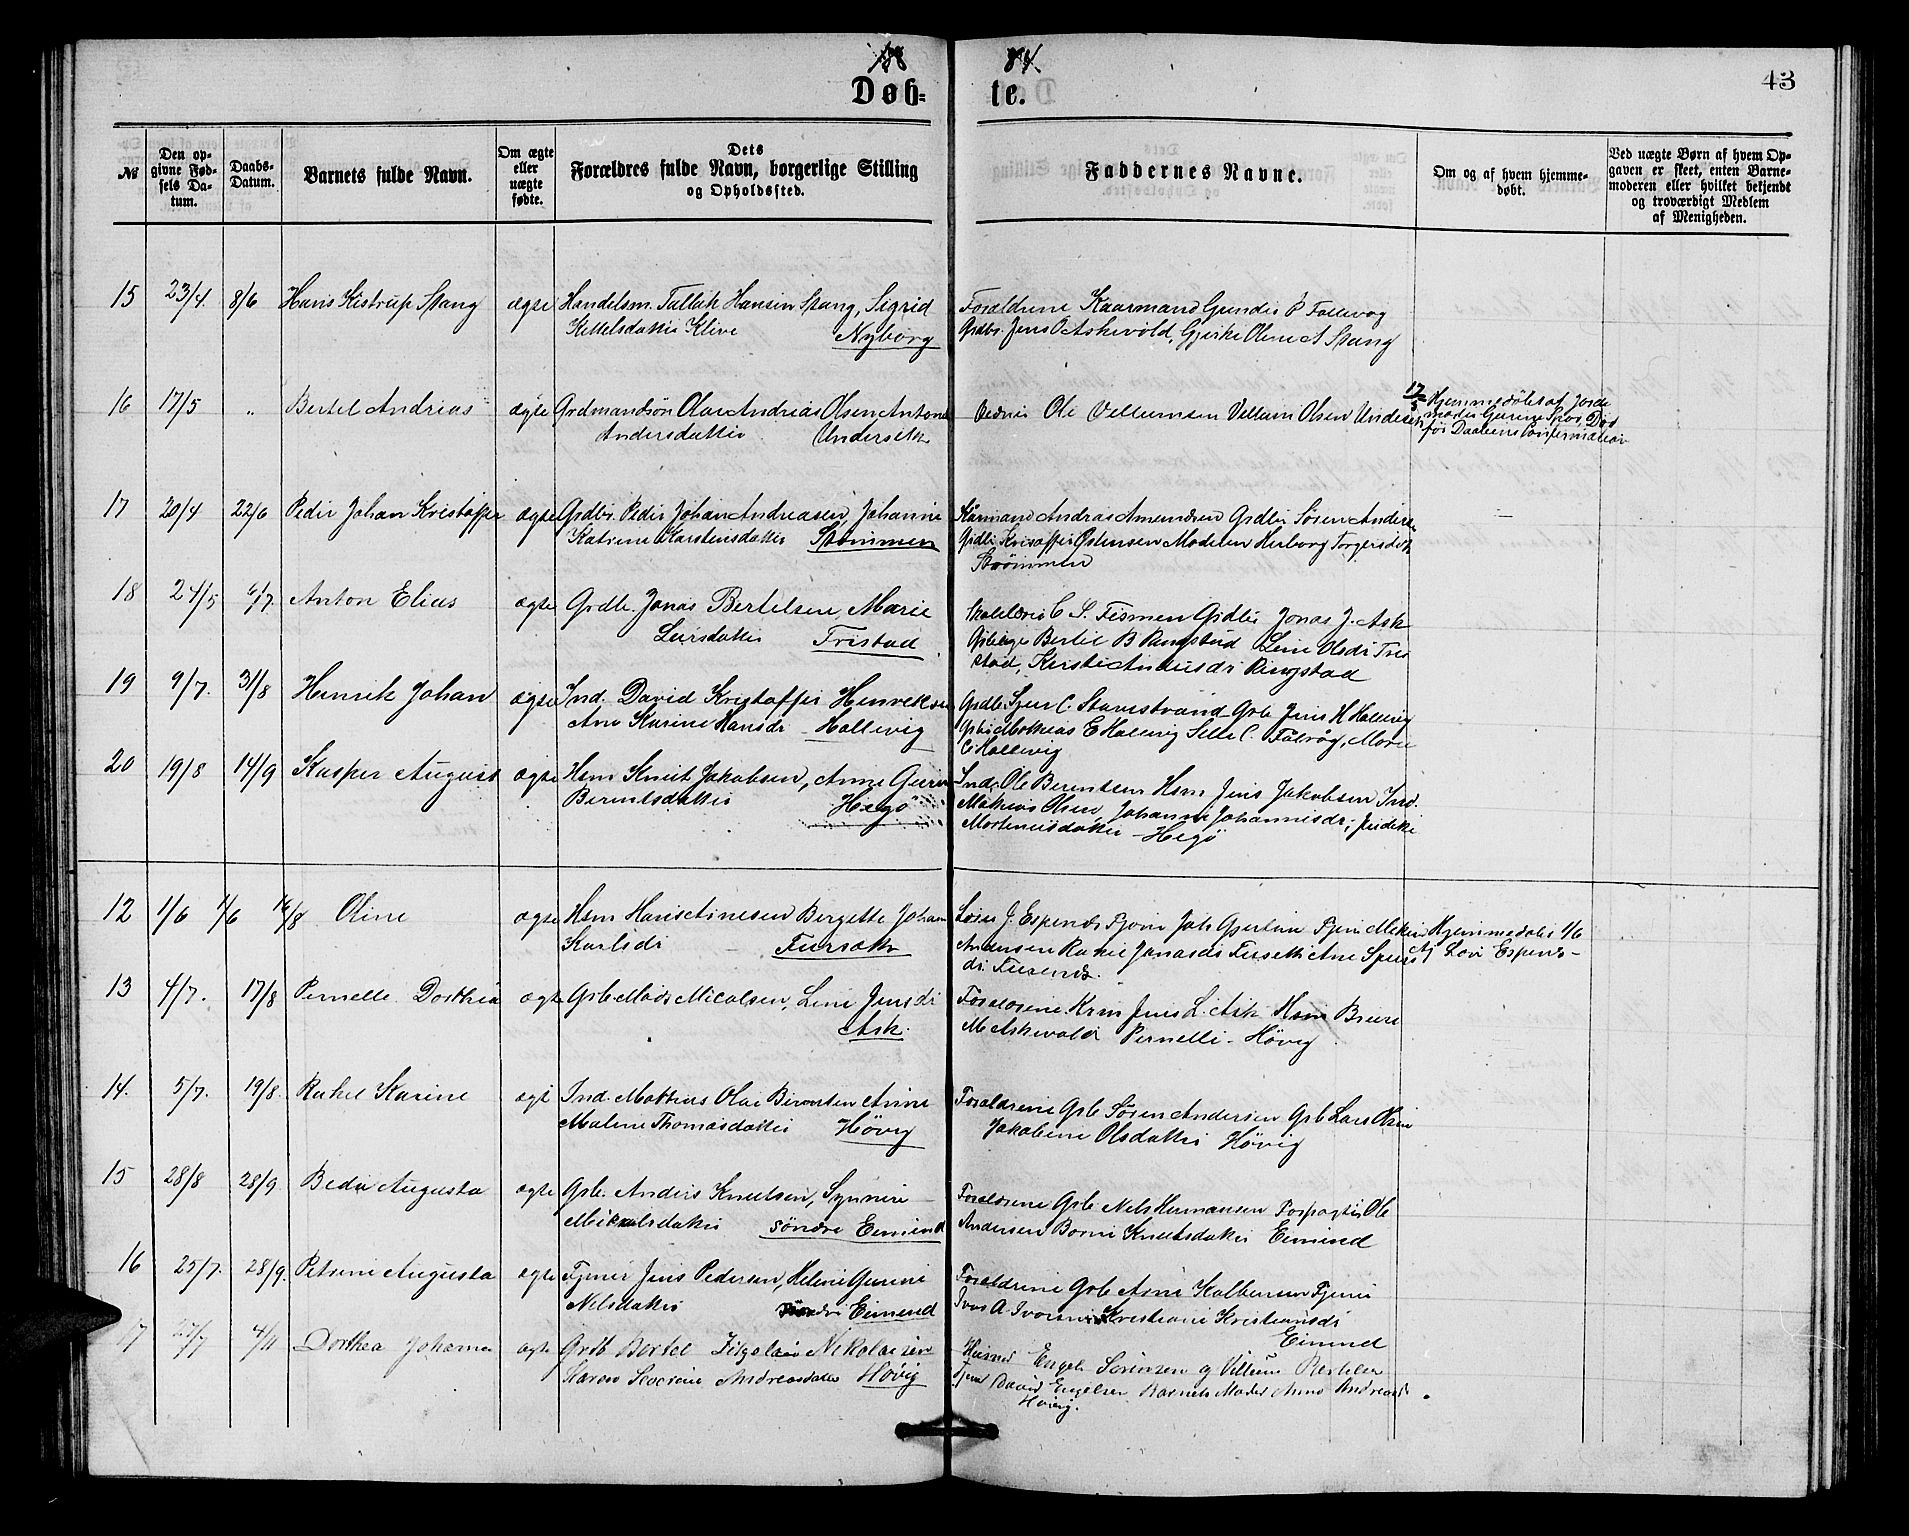 18 84.
43
Døb= te.
№
Den op-
givne Fød-
sels Da-
tum.
Daabs-
Datum.
Barnets fulde Navn.
Om ægte
eller
uægte
fødte.
Dets
Forældres fulde Navn, borgerlige Stilling
og Opholdssted.
Faddernes Navne.
Om og af hvem hjemme-
døbt.
Ved uægte Børn af hvem Op-
gaven er skeet, enten Barne-
moderen eller hvilket bekjendt
og troværdigt Medlem
af Menigheden.
15 23/4. 8/6 Hans Kistrup Stang ægte Handelsm. Tallak Hansen Stang, Sigrid
Kittelsdatter Klive Nyborg
Forældrene Kaarmand P
Grdbr. Jens O Askevold, Olene A Stang
16 17/5 " Bertel Andreas ægte Grdmandsøn Olai Andreas Olsen Antona
Andersdatter Undersæth
Ole Vellumsen Vellum Olsen
17/5 Hjemmedøbt af Jorde
moder Død
før Daabens Confirmation
17 20/4 22/6 Peder Johan Kristoffer ægte Grdbr. Peder Johan Andreasen, Johanne
Katrine Karstensdatter Strømmen
Kårmand Andreas Amundsen Grdbr Søren Anders
Grdbr Kristoffer Østensen Madelen Herborg Torgersdtr
Strømmen
18 24/5 6/7. Anton Elias ægte Grdb. Jonas Bertelsen, Marie
Larsdatter Tristad
C. S. Grdbr Jonas J. Ask
Bertel B Ringstad Line Olsdr Tri
stad, Kirsti Andersdr Ringstad
19 9/7. 31/8 Henrik Johan ægte Ind. David Kristoffer Henriksen
Ane Karine Hansdr - Hallevig
Grdb. C. Stavestrand Grb Jens H Hallevig
Mathias E Hallevig C. Marie
C Hallevig
20 19/8 14/9 Kasper August ægte Hsm Knut Jakobsen, Anne Gurine
Berentsdatter Hegø
Ind. Ole Berentsen Hsm Jens Jakobsen Ind.
Mathias Olsen, Johanne Johannesdr;
Martinusdatter - Hegø
12 1/6 1/6 16/8 Oline ægte Hsm Hans Arnesen Bergitte Johan
Karlsdr Fursæth
J. Espenes
Andersen Rakel Jonasdr Ane
dr.
Hjemmedøbt 1/6
Af Espenes-
13 4/7. 17/8 Pernelle Dorthea ægte Grb. Mads Nicolsen, Line Jensdr
Ask.
Forældrene. Krm Jens L. Ask Hsm
M Askevold Pernelle - Høvig
14. 5/7. 19/8. Rakel Karine ægte Ind. Mathias Olai Berentsen Anne
Malene Thomasdatter Høvig
Forældrene Grb Søren Andersen Grb Lars Olsen
Jakobine Olsdatter Høvig
15 28/8 28/9. Beda Augusta ægte Grb. Anders Knutsen, Synneve
Mikkelsdatter Søndre Eimind
Forældrene Grb Nels Hermansen Forpagter Ole
Andersen Knutsdatter Eimind
16 25/7. 28/9. Petrine Augusta ægte Tjener Jens Pedersen, Helene Gurine
Nilsdatter Søndre Eimind
Forældrene Grb Arne Tjener
Ivar A. Iversen Kristiane Kristiansdr
Eimind
17 25/7 4/11 Dorthea Johanna ægte Grdb Bertel Nikolaisen
Karen Severine Andreasdatter Høvig
Husmd Engel Sørensen og Villum Bertelsen
Tjener David Engelsen Barnets Moder Anne Andreasdr
Høvig.